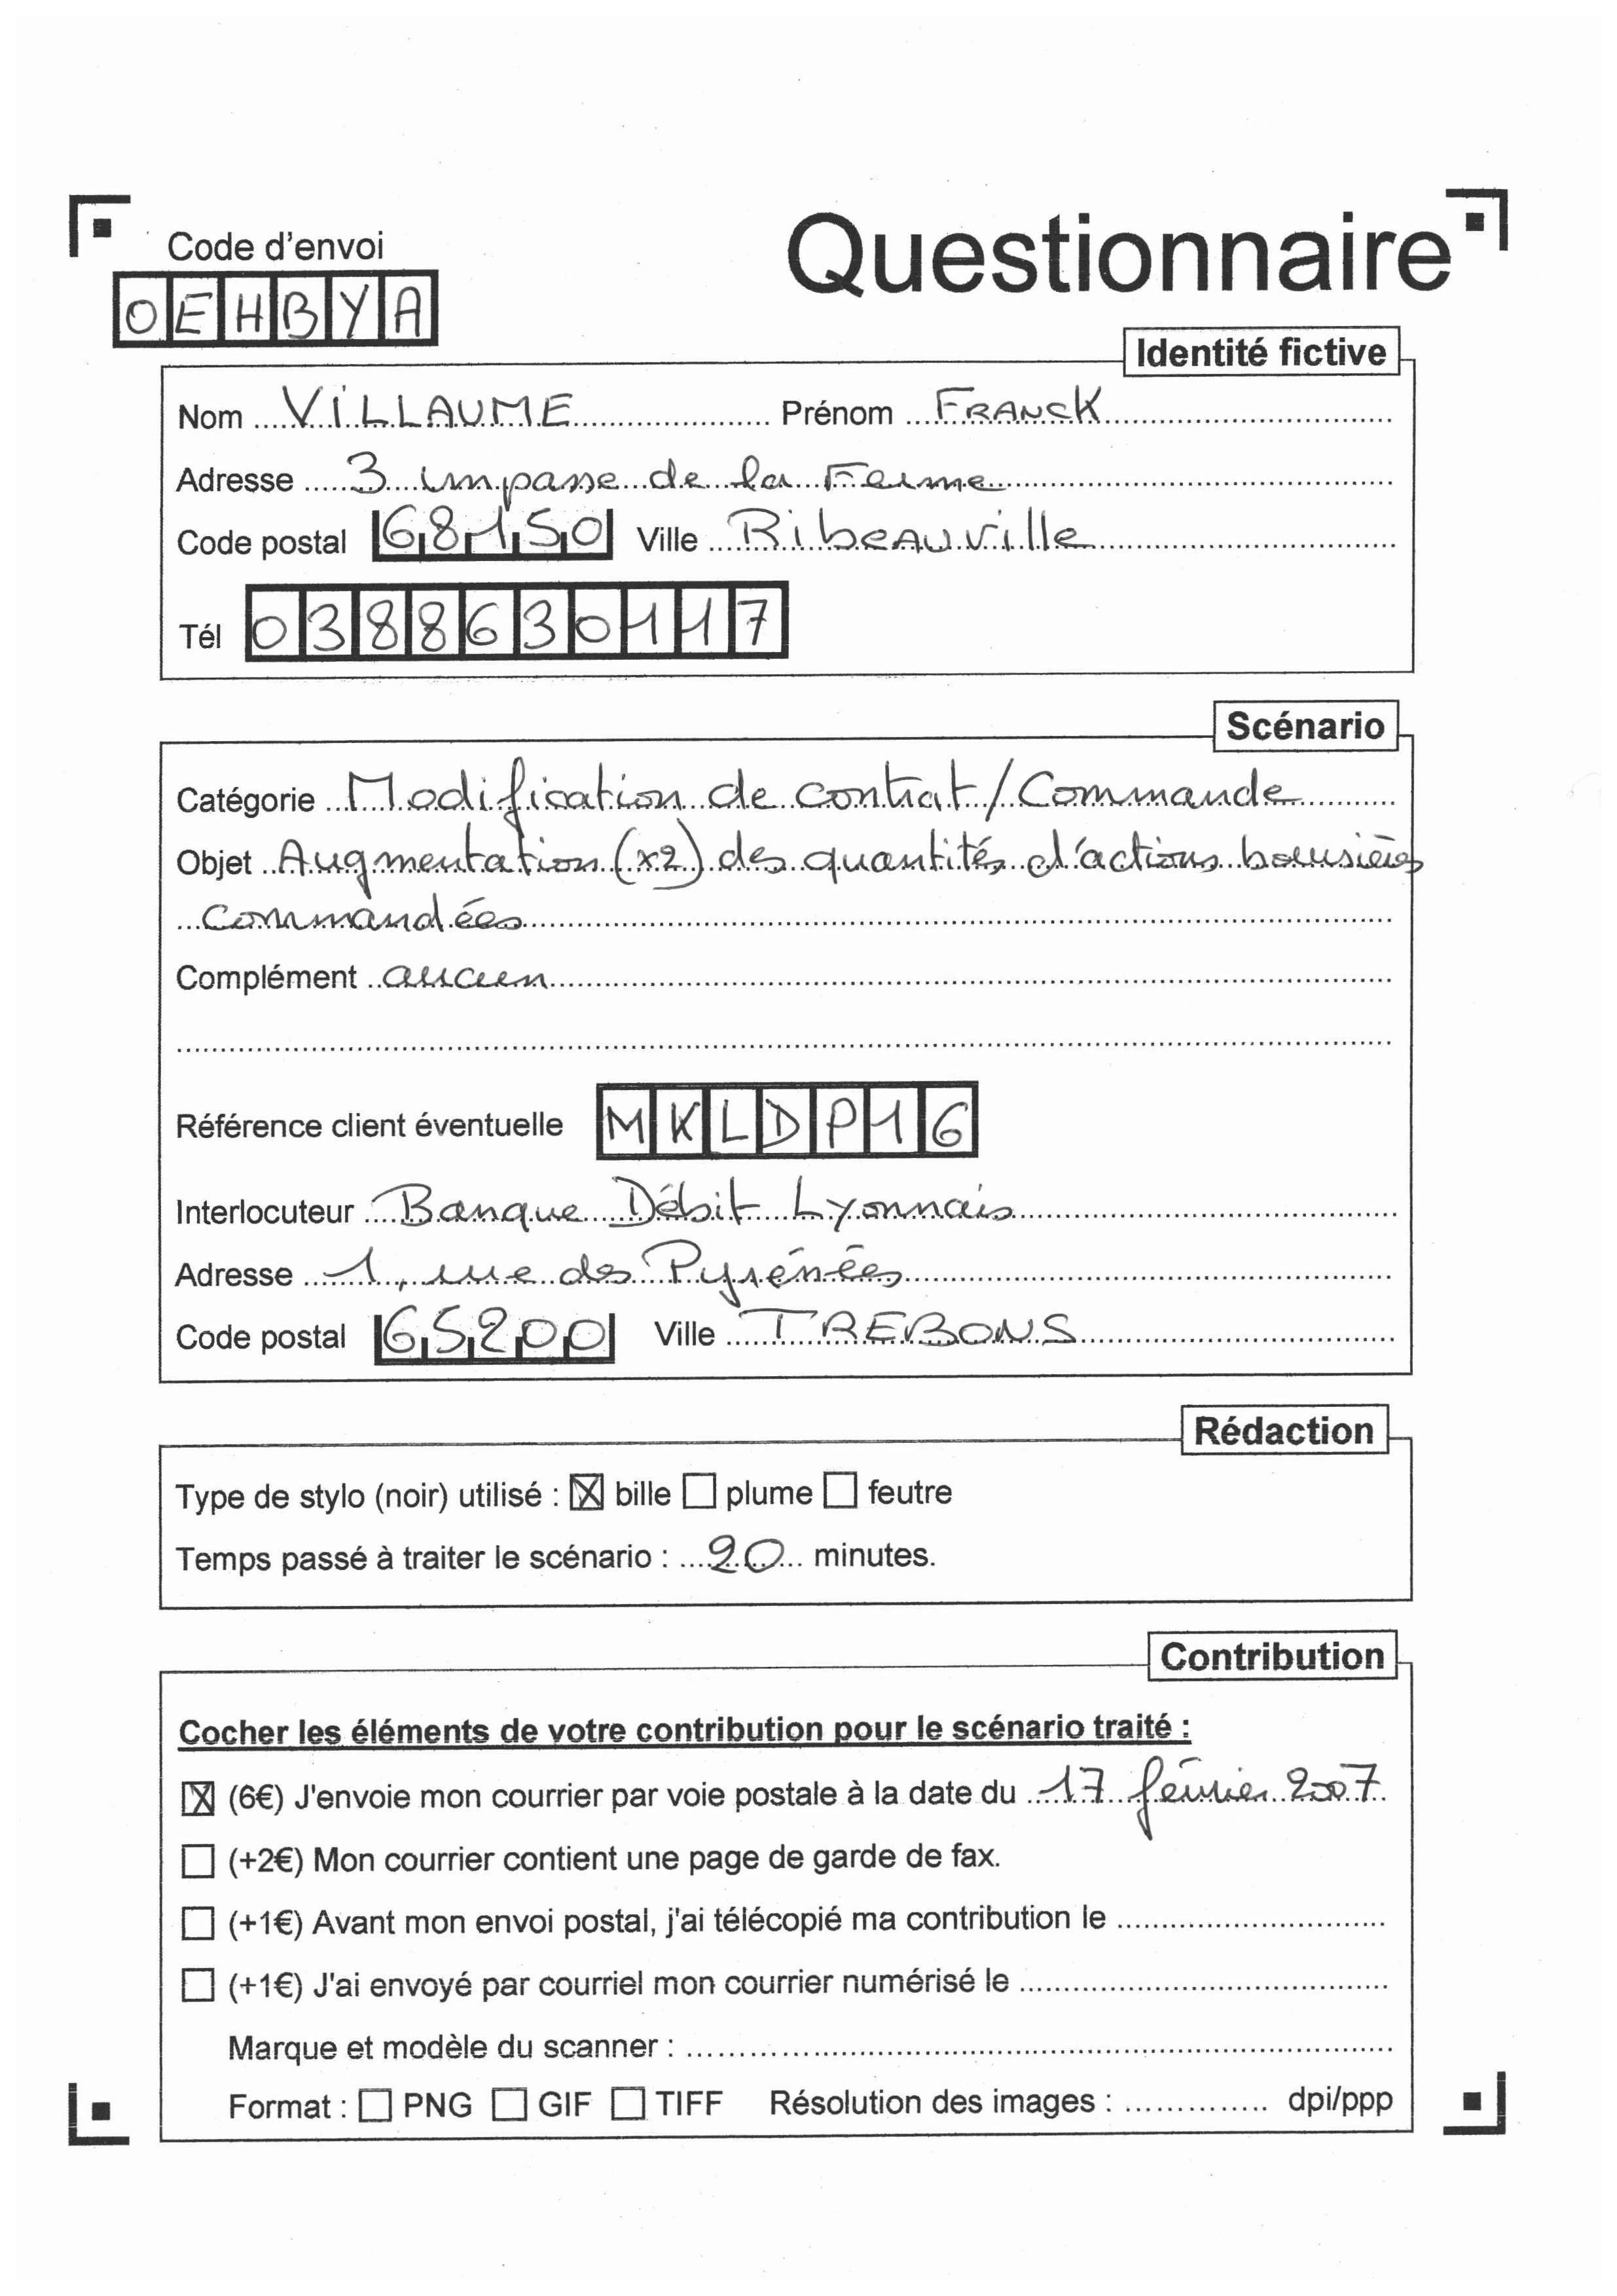 Questionnaire
Code d'envoi
OEHBYA
Identité fictive
Nom VILLAUME Prénom FRANCK
Adresse 3 impasse de la Ferme
Code postal 68150 Ville Ribeauville
Tél 0388630117
Scénario
Catégorie Modification de contrat/Commande
Objet Augmentation (x2) des quantités d'actions boursières
commandées
Complément aucun
Référence client éventuelle MKLDP16
Interlocuteur Banque Débit Lyonnais
Adresse 1, rue des Pyrénées
Code postal 65200 Ville TREBONS
Rédaction
Type de stylo (noir) utilisé : ☒ bille ☐ plume ☐ feutre
Temps passé à traiter le scénario : 20 minutes.
Contribution
Cocher les éléments de votre contribution pour le scénario traité :
☒ (6€) J'envoie mon courrier par voie postale à la date du 17 février 2007
☐ (+2€) Mon courrier contient une page de garde de fax.
☐ (+1€) Avant mon envoi postal, j'ai télécopié ma contribution le
☐ (+1€) J'ai envoyé par courriel mon courrier numérisé le
Marque et modèle du scanner :
Format : ☐ PNG ☐ GIF ☐ TIFF Résolution des images : dpi/ppp